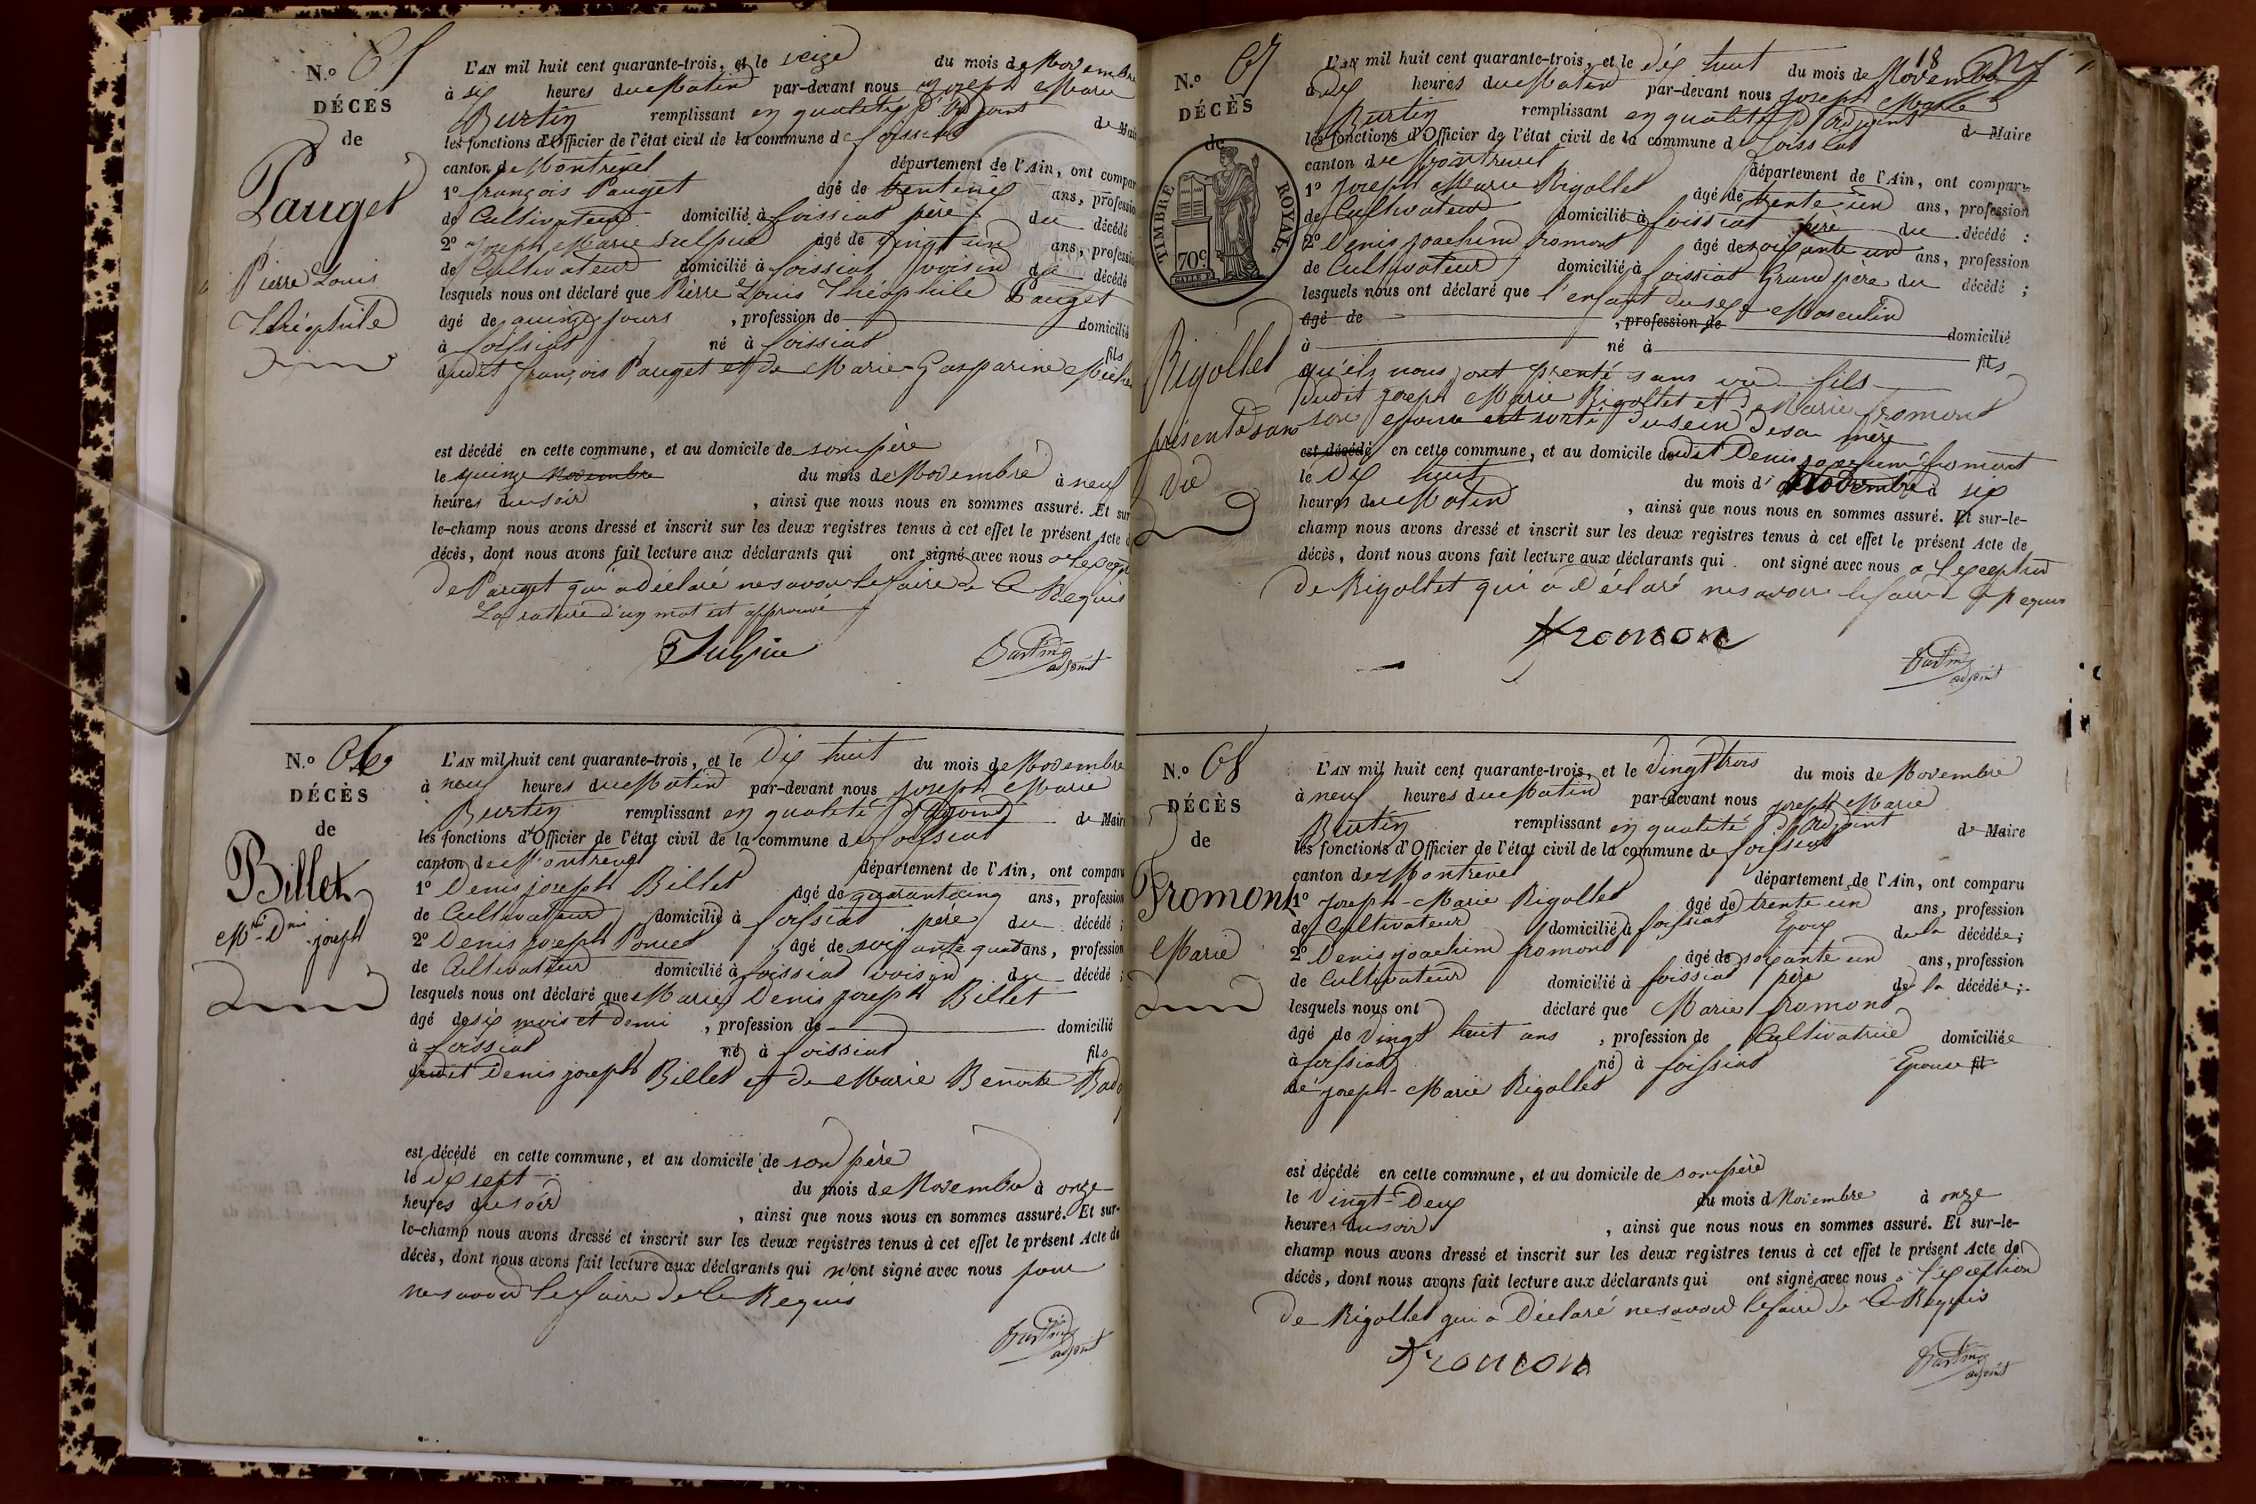 N.º 65
DÉCÈS
de
Pauget
Pierre Louis
Théophile
L'AN mil huit cent quarante-trois, et le seize du mois de Novembre
à six heures du Matin par-devant nous Joseph Marie
Burtin remplissant en qualité d'Adjoint de Mair
les fonctions d'Officier de l'état civil de la commune de foissiat
canton de Montrevel département de l'Ain, ont compar
1º françois Pauget âgé de ans, profession
de Cultivateur domicilié à foissiat père du décédé
2º Joseph Marie Sulpice âgé de vingt un ans, profession
de Cultivateur domicilié à foissiat voisin du décédé
lesquels nous ont déclaré que Pierre Louis Théophile Pauget
âgé de quinze jours , profession de domicilié
à foissiat né à foissiat fils
dudit françois Pauget et de Marie-Gasparine
est décédé en cette commune, et au domicile de son père
le quinze Novembre du mois de Novembre à neuf
heures du soir , ainsi que nous nous en sommes assuré. Et sur
le-champ nous avons dressé et inscrit sur les deux registres tenus à cet effet le présent Acte d
décès, dont nous avons fait lecture aux déclarants qui ont signé avec nous
de Pauget qui a déclaré ne savoir le faire de ce Requis
La rature d'un mot est approuvé
Sulpice Burtin
adjoint
N.º 66
DÉCÈS
de
Billet
Mie Dnis joseph
L'AN mil huit cent quarante-trois, et le dix huit du mois de Novembre
à neuf heures du Matin par-devant nous Joseph Marie
Burtin remplissant en qualité d'Adjoint de Mair
les fonctions d'Officier de l'état civil de la commune de foissiat
canton de Montrevel département de l'Ain, ont comparu
1º Denis joseph Billet âgé de quarante cinq ans, profession
de Cultivateur domicilié à foissiat père du décédé ;
2º Denis joseph âgé de soixante quatre ans, profession
de Cultivateur domicilié à foissiat voisin du décédé ;
lesquels nous ont déclaré que Marie Denis joseph Billet
âgé de six mois et demi , profession de domicilié
à foissiat né à foissiat fils
dudit Denis joseph Billet et de Marie Benoite
est décédé en cette commune, et au domicile de son père
le dix sept du mois de Novembre à onze
heures du soir , ainsi que nous nous en sommes assuré. Et sur-
le-champ nous avons dressé et inscrit sur les deux registres tenus à cet effet le présent Acte de
décès, dont nous avons fait lecture aux déclarants qui n'ont signé avec nous pour
ne savoir le faire de ce Requis
Burtin
adjoint
18
N.º 67
DÉCÈS
de
TIMBRE ROYAL
70 c
Rigollet
présenté sans
vie
L'AN mil huit cent quarante-trois, et le dix huit du mois de Novembre
à dix heures du Matin par-devant nous joseph Marie
Burtin remplissant en qualité d'Adjoint de Maire
les fonctions d'Officier de l'état civil de la commune de foissiat
canton de Montrevel département de l'Ain, ont comparu
1º Joseph Marie Rigollet âgé de trente un ans, profession
de Cultivateur domicilié à foissiat père du décédé ;
2º Denis joachim fromont âgé de soixante un ans, profession
de Cultivateur domicilié à foissiat Grand père du décédé ;
lesquels nous ont déclaré que l'enfant du sexe Masculin
âgé de , profession de
à né à domicilié
fils
qu'ils nous ont présenté sans vie fils
dudit joseph Marie Rigollet et de Marie fromont
son épouse est sorti du sein de sa mère
est décédé en cette commune, et au domicile dudit Denis joachim fromont
le dix huit du mois d novembre à six
heures du Matin , ainsi que nous nous en sommes assuré. Et sur-le-
champ nous avons dressé et inscrit sur les deux registres tenus à cet effet le présent Acte de
décès, dont nous avons fait lecture aux déclarants qui ont signé avec nous a l'exception
de Rigollet qui a déclaré ne savoir le faire de ce requis
fromon Burtin
adjoint
N.º 68
DÉCÈS
de
Fromont
Marie
L'AN mil huit cent quarante-trois, et le vingt trois du mois de Novembre
à neuf heures du Matin par-devant nous joseph Marie
Burtin remplissant en qualité d'Adjoint de Maire
les fonctions d'Officier de l'état civil de la commune de foissiat
canton de Montrevel département de l'Ain, ont comparu
1º Joseph-Marie Rigollet âgé de trente un ans, profession
de Cultivateur domicilié à foissiat Epoux de la décédée ;
2º Denis joachim fromont âgé de soixante un ans, profession
de Cultivateur domicilié à foissiat père de la décédée ;
lesquels nous ont déclaré que Marie fromont
âgé de vingt huit ans , profession de Cultivatrice domiciliée
à foissiat né à foissiat Epouse fil
de joseph-Marie Rigollet
est décédé en cette commune, et au domicile de son père
le vingt-deux du mois d Novembre à onze
heures du soir , ainsi que nous nous en sommes assuré. Et sur-le-
champ nous avons dressé et inscrit sur les deux registres tenus à cet effet le présent Acte de
décès, dont nous avons fait lecture aux déclarants qui ont signé avec nous a l'exception
de Rigollet qui a déclaré ne savoir le faire de ce Requis
fromon Burtin
adjoint